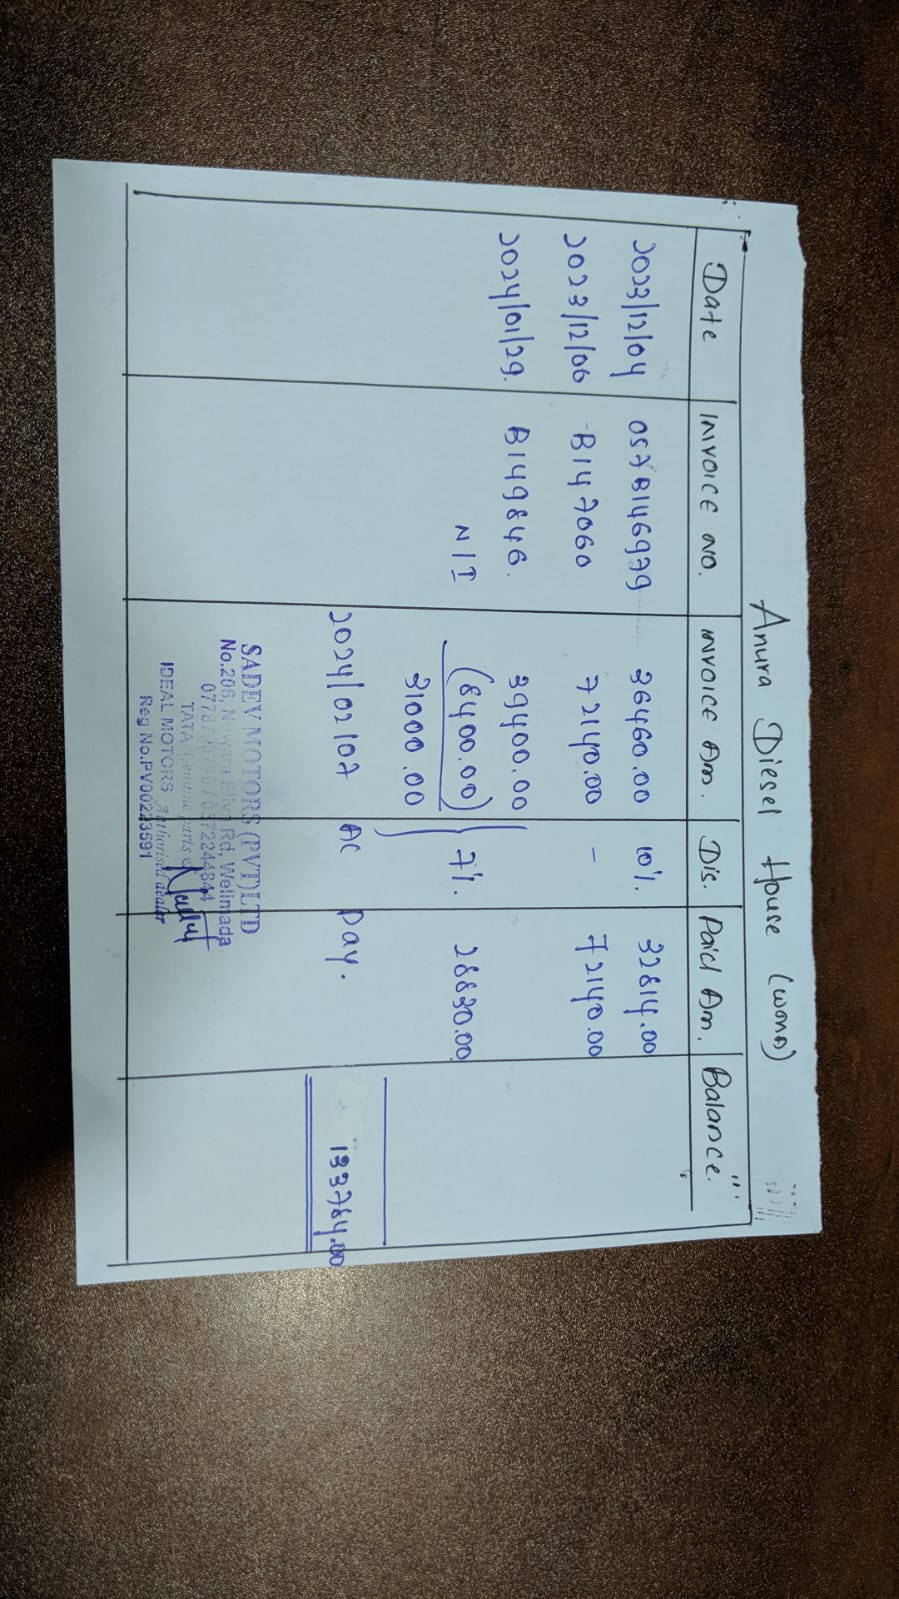 Anura Diesel House (WOMA)
Date Invoice No. Invoice Am. Dis. Paid Am. Balance.
2023/12/04 057B146979 36460.00 10%. 32814.00
2023/12/06 B147060 72140.00 - 72140.00
2024/01/29. B149846. 39400.00
N/I (8400.00) 7%. 28830.00
31000.00
2024/02/07 AC Pay. 133784.00
SADEV MOTORS (PVT) LTD
No.206, Nuwara Eliya Rd, Welimada
TATA Genuine parts &
IDEAL MOTORS Authorised dealer
Reg No.PV00243591